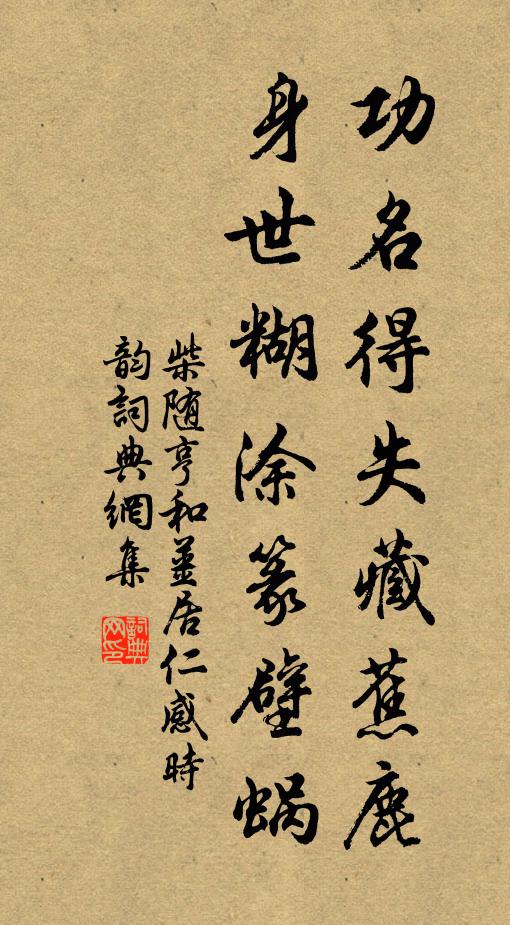 功名得失藏蕉鹿
身世糊涂篆壁蜗
柴随亨和姜居仁感時
韵詞典網集
詞典网印